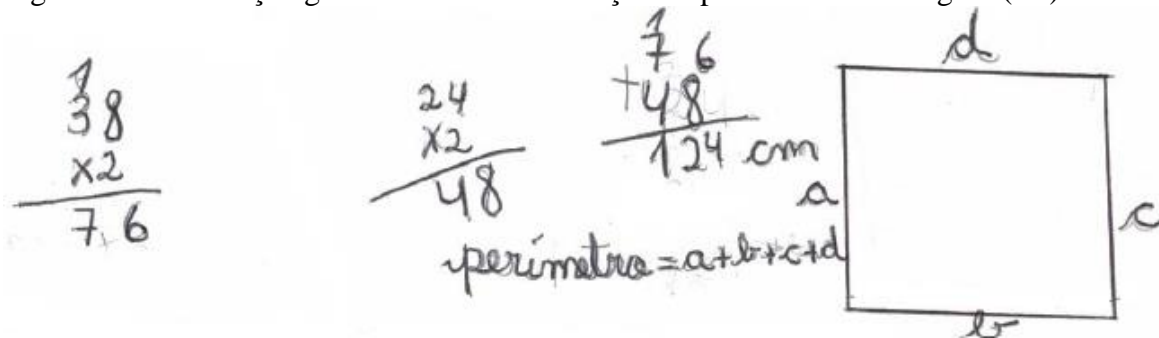 1
38
x2
76
24
x2
48
1
76
+48
124 cm
perímetro=a+b+c+d
d
a
c
b